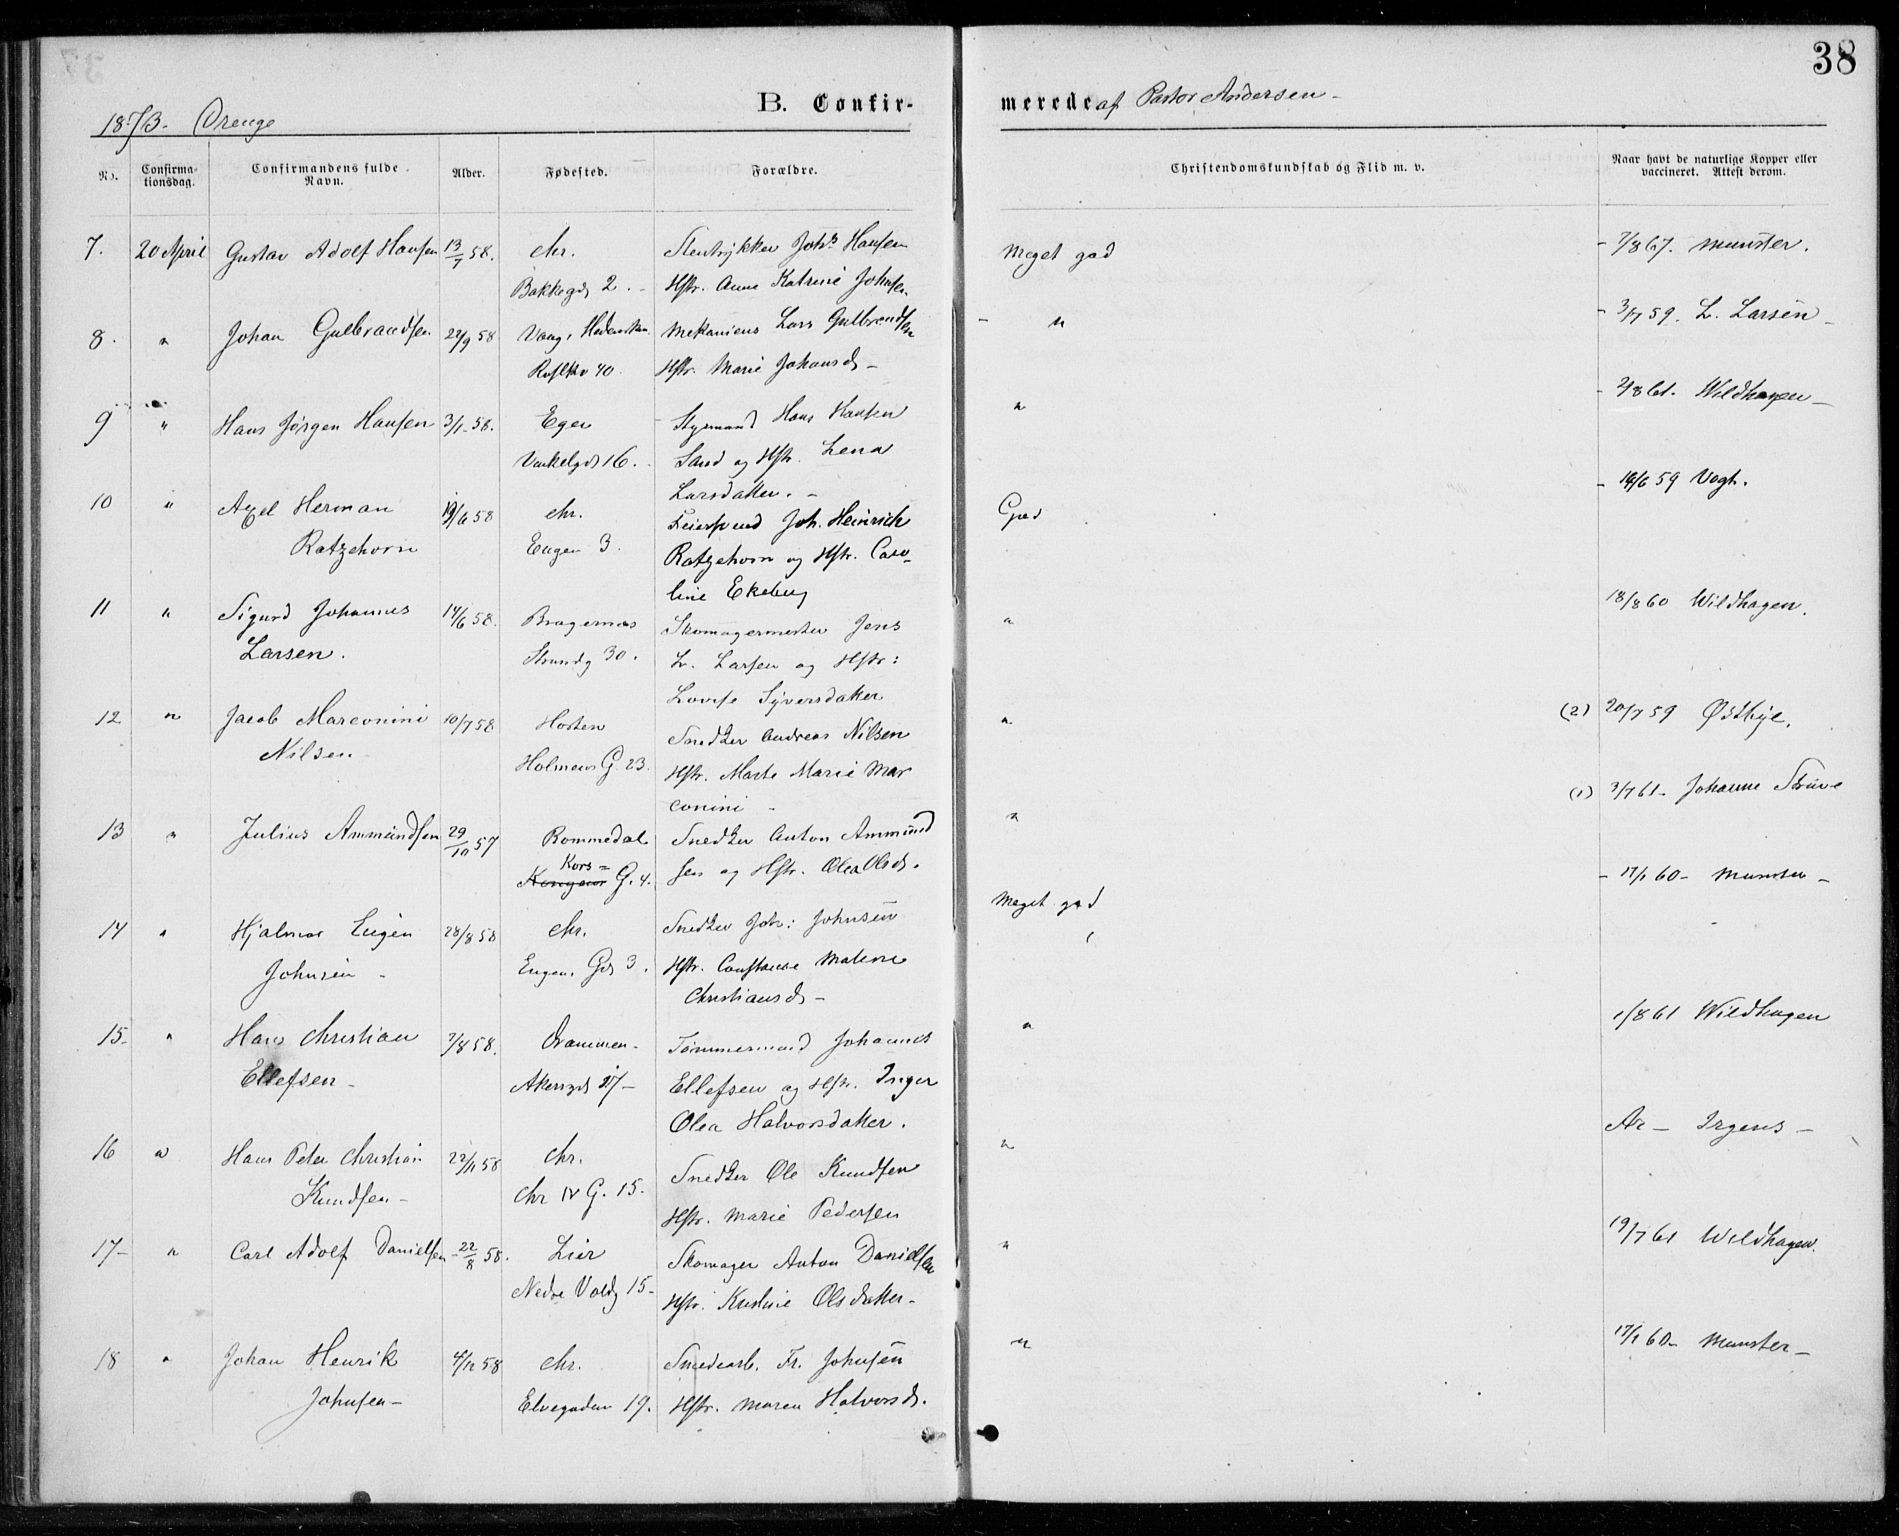 38
1873. Drenge
B. Confir-
merede af Pastor Andersen -
No.
Confirma-
tionsdag.
Confirmandens fulde
Navn.
Alder.
Fødested.
Forældre.
Christendomskundskab og Flid m. v.
Naar havt de naturlige Kopper eller
vaccineret. Attest derom.
7. 20 April Gustav Adolf Hansen 13/7 58. Chr. Stentrykker Johs Hansen Meget god - 7/8 67. Munster.
Bakkegd 2. - Hstr. Anne Katrine Johnsen
8. " Johan Gulbrandsen 22/9 58 Vang, Hedemken Mekanicus Lars Gulbrandsen - " - 3/7 59. L. Larsen -
40. Hstr. Marie Johansd -
9 " Hans Jørgen Hansen 3/1 - 58. Eger - Styrmand Hans Hansen " - 2/8 61. Wildhagen -
Vinkelgd 16. Sand og Hstr. Lena
Larsdatter. -
10 " Axel Herman 19/6 58 Chr. Joh. Heinrich God - 19/6 59 Vogt.
Ratzehorn Eugen 3. Ratzehorn og Hstr. Caro-
line Ekeberg
11 " Sigurd Johannes 14/6 58. Bragernæs Skomagermester Jens " 18/8 60 Wildhagen.
Larsen. Strandg 30. L. Larsen og Hstr:
Lovise Syversdatter
12 " Jacob Marconini 10/7 58 Horten Snedker Andreas Nilsen " (2) 20/7 59 Østbye.
Nilsen - Holmens G. 23. Hstr. Marte Marie Mar
conini -
13 " Julius Ammundsen 29/10 57 Rommedal Snedker Anton Ammund " (1) 3/7 61 - Johanne Strüve
Kors =
G. 4. sen og Hstr. Olea Olsd.
14 " Hjalmar Eugen 28/8 58 Chr. Snedker Joh: Johnsen Meget god - 17/1 60 - Munster -
Johnsen - Eugen. Gd 3. Hstr. Constance Malene
Christiansd -
15 - " Hans Christian 7/8 58. Drammen - Tømmermand Johannes " 1/8 61 Wildhagen
Ellefsen - Akersgd 27 - Ellefsen og Hstr. Inger
Olea Halvorsdatter.
16 " Hans Peter Christian 22/11 58 Chr. Snedker Ole Knudsen " Ar - Irgens -
Knudsen - Chr IV G. 15. Hstr. Marie Pedersen
17 - " Carl Adolf Danielsen - 22/8 58. Lier Skomager Anton Danielsen " 19/7 61 Wildhagen.
Nedre Voldg 15 - Hstr. Kristine Olsdatter -
18 " Johan Henrik 4/12 58 Chr. Smedearb. Fr. Johnsen " 17/1 60 - Munster -
Johnsen - Elvegaden 19. Hstr. Maren Halvorsd.